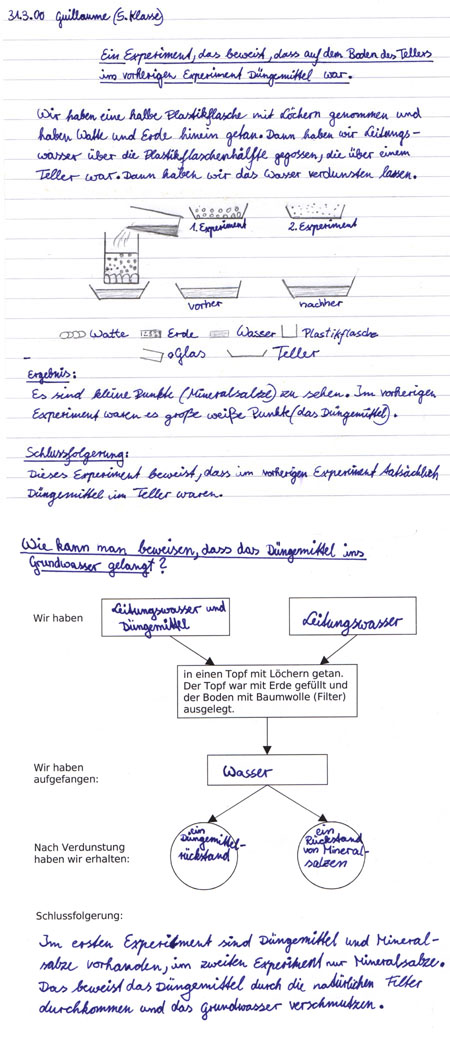 31.3.00 Guillaume (5. Klasse)
Ein Experiment, das beweist, dass auf dem Boden des Tellers
im vorherigen Experiment Düngemittel war.
Wir haben eine halbe Plastikflasche mit Löchern genommen und
haben Watte und Erde hinein getan. Dann haben wir Leitungs-
wasser über die Plastikflaschenhälfte gegossen, die über einem
Teller war. Dann haben wir das Wasser verdunsten lassen.
1. Experiment
2. Experiment
vorher
nachher
Watte Erde Wasser Plastikflasche
Glas Teller
Ergebnis:
Es sind kleine Punkte (Mineralsalze) zu sehen. Im vorherigen
Experiment waren es große weiße Punkte (das Düngemittel).
Schlussfolgerung:
Dieses Experiment beweist, dass im vorherigen Experiment tatsächlich
Düngemittel im Teller waren.
Wie kann man beweisen, dass das Düngemittel ins
Grundwasser gelangt?
Wir haben
Leitungswasser und
Düngemittel
Leitungswasser
in einen Topf mit Löchern getan.
Der Topf war mit Erde gefüllt und
der Boden mit Baumwolle (Filter)
ausgelegt.
Wir haben
aufgefangen:
Wasser
Nach Verdunstung
haben wir erhalten:
ein
Düngemittel-
rückstand
ein
Rückstand
von Mineral-
salzen
Schlussfolgerung:
Im ersten Experiment sind Düngemittel und Mineral-
salze vorhanden, im zweiten Experiment nur Mineralsalze.
Das beweist das Düngemittel durch die natürlichen Filter
durchkommen und das Grundwasser verschmutzen.